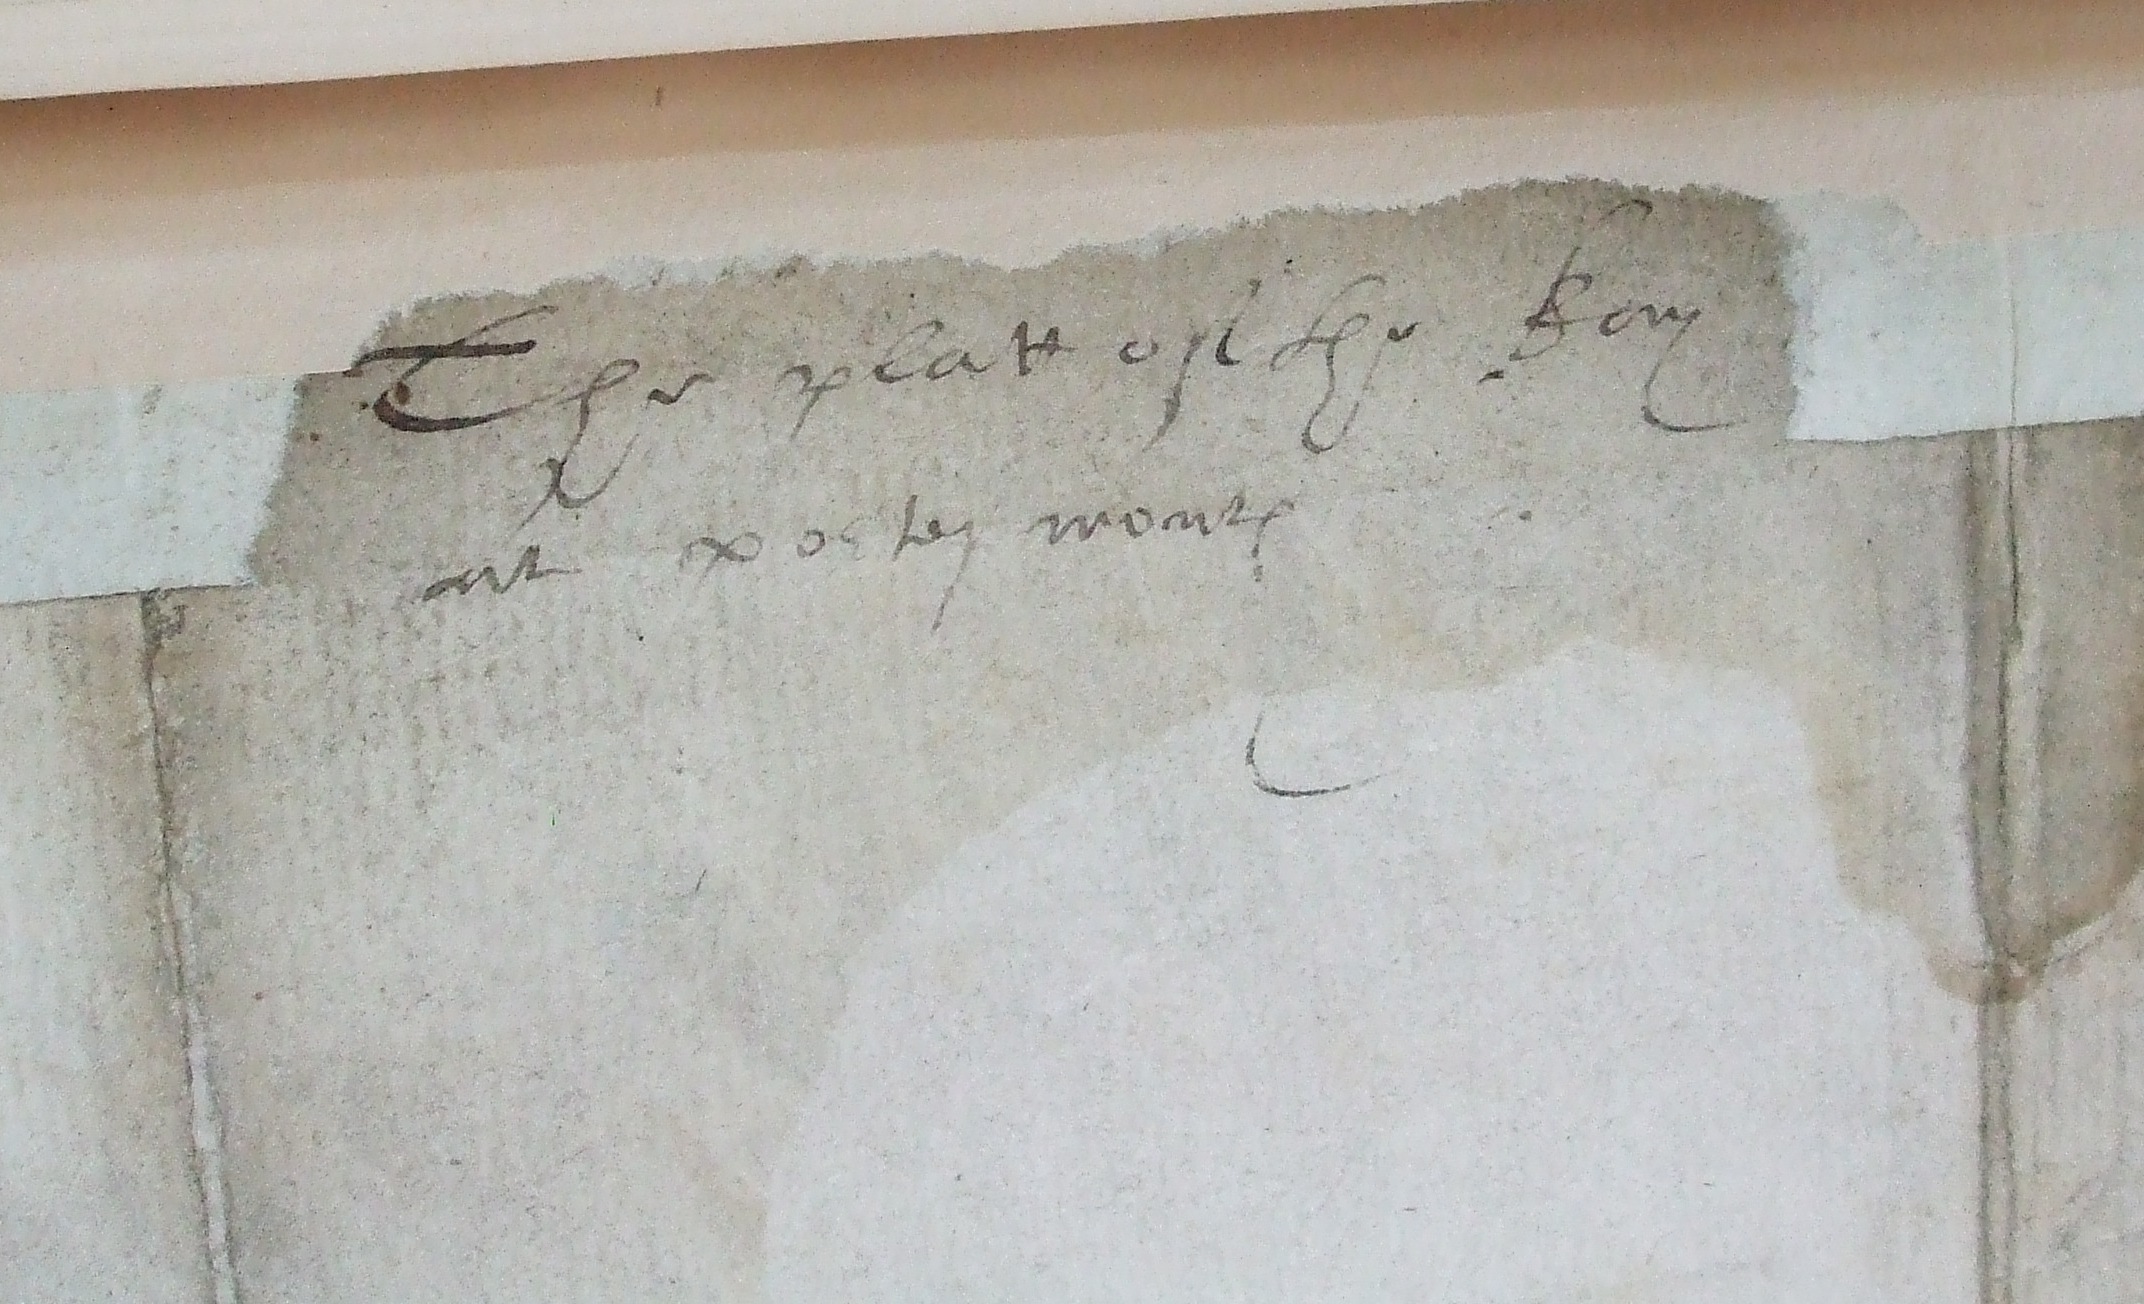 The platt off the
att portesmouth